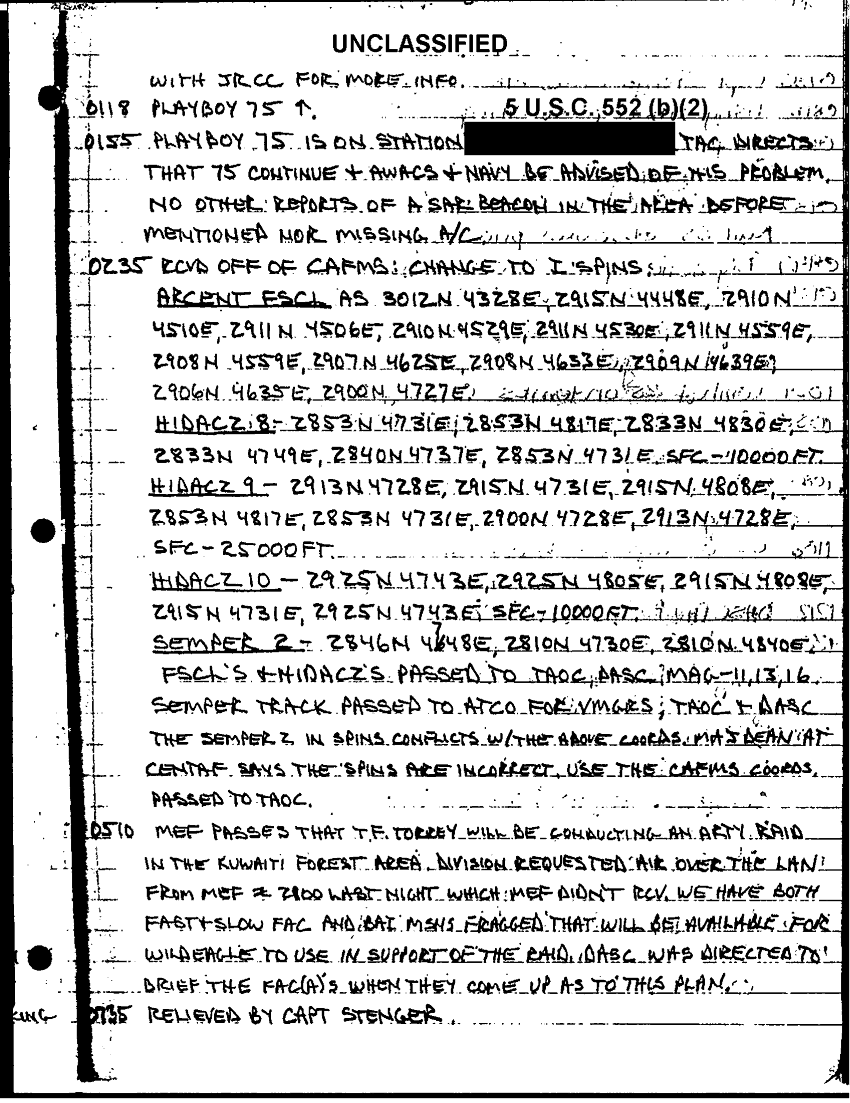 UNCLASSIFIED
WITH JRCC FOR MORE INFO.
0118 PLAYBOY 75 ↑. 5 U.S.C. 552 (b)(2)
0155 PLAYBOY 75 IS ON STATION TAC DIRECTS
THAT 75 CONTINUE + AWACS + NAVY BE ADVISED OF HIS PROBLEM.
NO OTHER REPORTS OF A SAR BEACON IN THE AREA BEFORE
MENTIONED NOR MISSING A/C.
0235 RCVD OFF OF CAFMS: CHANGE TO I SPINS:
ARCENT FSCL AS 3012N 4328E, 2915N 4448E, 2910N
4510E, 2911N 4506E, 2910N 4529E, 2911N 4530E, 2911N 4559E,
2908N 4559E, 2907N 4625E, 2908N 4633E, 2909N 4639E,
2906N 4635E, 2900N 4727E.
HIDACZ 8 - 2853N 4731E, 2853N 4817E, 2833N 4830E,
2833N 4749E, 2840N 4737E, 2853N 4731E SFC-10000FT.
HIDACZ 9 - 2913N 4728E, 2915N 4731E, 2915N 4808E,
2853N 4817E, 2853N 4731E, 2900N 4728E, 2913N 4728E,
SFC-25000FT.
HIDACZ 10 - 2925N 4743E, 2925N 4805E, 2915N 4808E,
2915N 4731E, 2925N 4743E, SFC-10000FT
SEMPER 2 - 2846N 4748E, 2810N 4730E, 2810N 4840E,
FSCL'S + HIDACZ'S PASSED TO TAOC, DASC, MAG-11, 13, 16.
SEMPER TRACK PASSED TO ATCO FOR VMGRS; TAOC + DASC
THE SEMPER 2 IN SPINS CONFLICTS W/THE ABOVE COORDS. MAJ DEAN AT
CENTAF SAYS THE SPINS ARE INCORRECT, USE THE CAFMS COORDS.
PASSED TO TAOC.
0510 MEF PASSES THAT T.F. TORREY WILL BE CONDUCTING AN ARTY RAID
IN THE KUWAITI FOREST AREA. DIVISION REQUESTED AIR OVER THE LAN
FROM MEF ≈ 2200 LAST NIGHT WHICH MEF DIDN'T RCV. WE HAVE BOTH
FAST + SLOW FAC AND BAI MSNS FRAGGED THAT WILL BE AVAILABLE FOR
WILDEAGLE TO USE IN SUPPORT OF THE RAID. DASC WAS DIRECTED TO
BRIEF THE FAC(A)'S WHEN THEY COME UP AS TO THIS PLAN.
0735 RELIEVED BY CAPT STENGER.